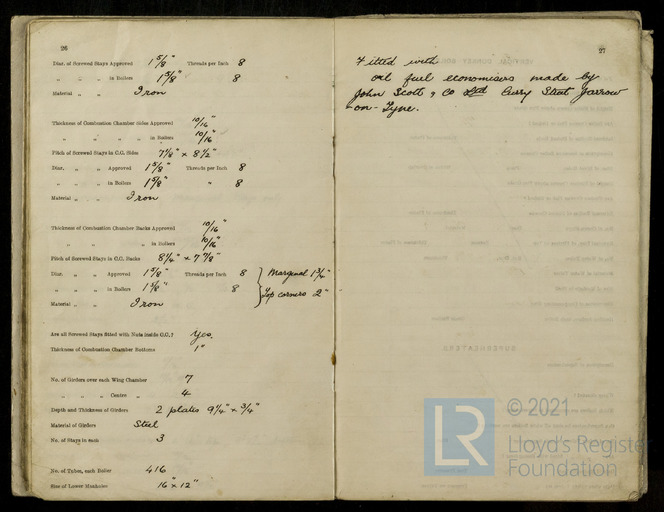 26
Diar. of Screwed Stays Approved 1 5/8" Threads per Inch 8
" " " in Boilers 1 5/8" " 8
Material " " Iron
Thickness of Combustion Chamber Sides Approved 10/16"
" " " " in Boilers 10/16"
Pitch of Screwed Stays in C.C. Sides 7 7/8" × 8 1/2"
Diar. " " Approved 1 5/8" Threads per Inch 8
" " " in Boilers 1 5/8" " 8
Material " " Iron
Thickness of Combustion Chamber Backs Approved 10/16"
" " " in Boilers 10/16"
Pitch of Screwed Stays in C.C. Backs 8 1/4" × 7 7/8"
Diar. " " Approved 1 5/8" Threads per Inch 8 } Marginal 1 3/4"
" " " in Boilers 1 5/8" 8 } Top corners 2"
Material " " Iron
Are all Screwed Stays fitted with Nuts inside C.C.? Yes.
Thickness of Combustion Chamber Bottoms 1"
No. of Girders over each Wing Chamber 7
" " " " Centre " 4
Depth and Thickness of Girders 2 plates 9 1/4" × 3/4"
Material of Girders Steel
No. of Stays in each 3
No. of Tubes, each Boiler 416
Size of Lower Manholes 16" × 12"
27
Fitted with
oil fuel economisers made by
John Scott & Co Ltd Curry Street Jarrow
-on-Tyne.
LR
© 2021
Lloyd's Register
Foundation